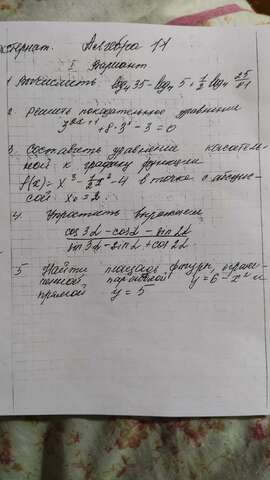 Экстернат. Алгебра 11
I Вариант
1. Вычислить: log₄ 35 - log₄ 5 + ½ log₄
2. Решить показательное уравнение
+ 8 · 3ˣ - 3 = 0
3. Составить уравнение касатель-
ной к графику функции
f(x) = x³ - ½x² - 4 в точке с абсцис-
сой x₀ = 2.
4. Упростить выражение
cos3α - cosα - sin2α
sin3α - sinα + cos2α
5 Найти площадь фигуры, ограни-
ченной параболой y = 6 - x² и
прямой y = 5